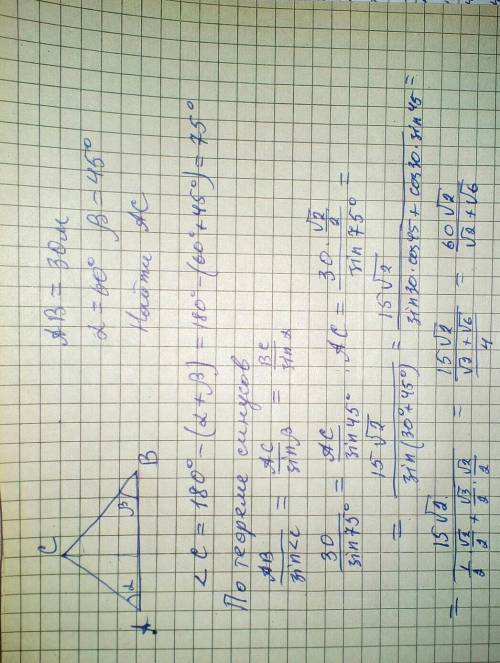 C
α β
A B
AB = 30м
α = 60° β = 45°
Найти AC
<C = 180° - (α + β) = 180° - (60° + 45°) = 75°
По теореме синусов
AB/sin<c = AC/sinβ = BC/sinα
30/sin75° = AC/sin45° ; AC = (30·√2/2)/sin75° =
= 15√2/sin(30°+45°) = 15√2/(sin30·cos45 + cos30·sin45) =
= 15√2/(1/2·√2/2 + √3/2·√2/2) = 15√2/((√2+√6)/4) = 60√2/(√2+√6)